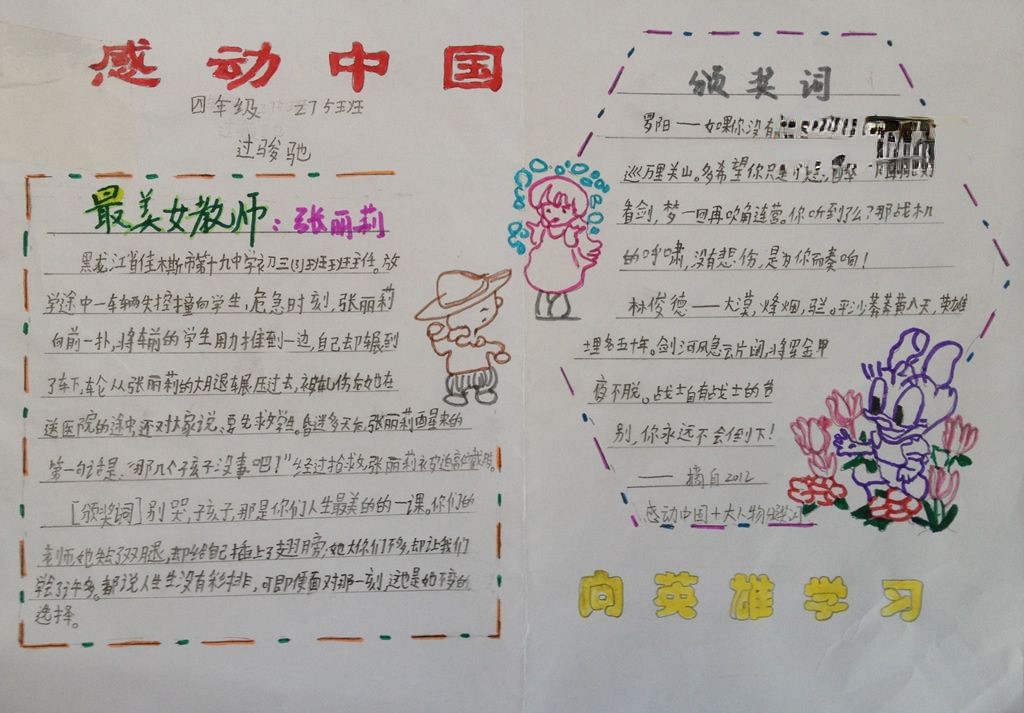 感动中国
四年级 275班
过骏驰
最美女教师：张丽莉
黑龙江省佳木斯市第十九中学初三(3)班班主任。放
学途中一车辆失控撞向学生，危急时刻，张丽莉
向前一扑，将车前的学生用力推到一边，自己却辗到
了车下，车轮从张丽莉的大腿辗压过去，被轧伤后她在
送医院的途中还对大家说：要先救学生。昏迷多天后，张丽莉醒来的
第一句话是："那几个孩子没事吧！"经过抢救，张丽莉被迫高位截肢。
[颁奖词]别哭，孩子，那是你们人生最美的的一课。你们的
老师，她失了双腿，却给自己插上了翅膀；她大你们不多，却让我们
学会了许多。都说人生没有彩排，可即便面对那一刻，这也是她不变的
选择。
颁奖词
罗阳——如果你没有
巡万里关山。多希望你只是
看剑，梦一回再吹角连营。你听到了么？那战机
的呼啸，没有悲伤，是为你而奏响！
林俊德——大漠，烽烟，马兰。平沙莽莽黄入天，英雄
埋名五十年。剑河风急云片阔，将军金甲
夜不脱。战士自有战士的告
别，你永远不会倒下！
——摘自2012
感动中国十大人物颁奖词
向英雄学习